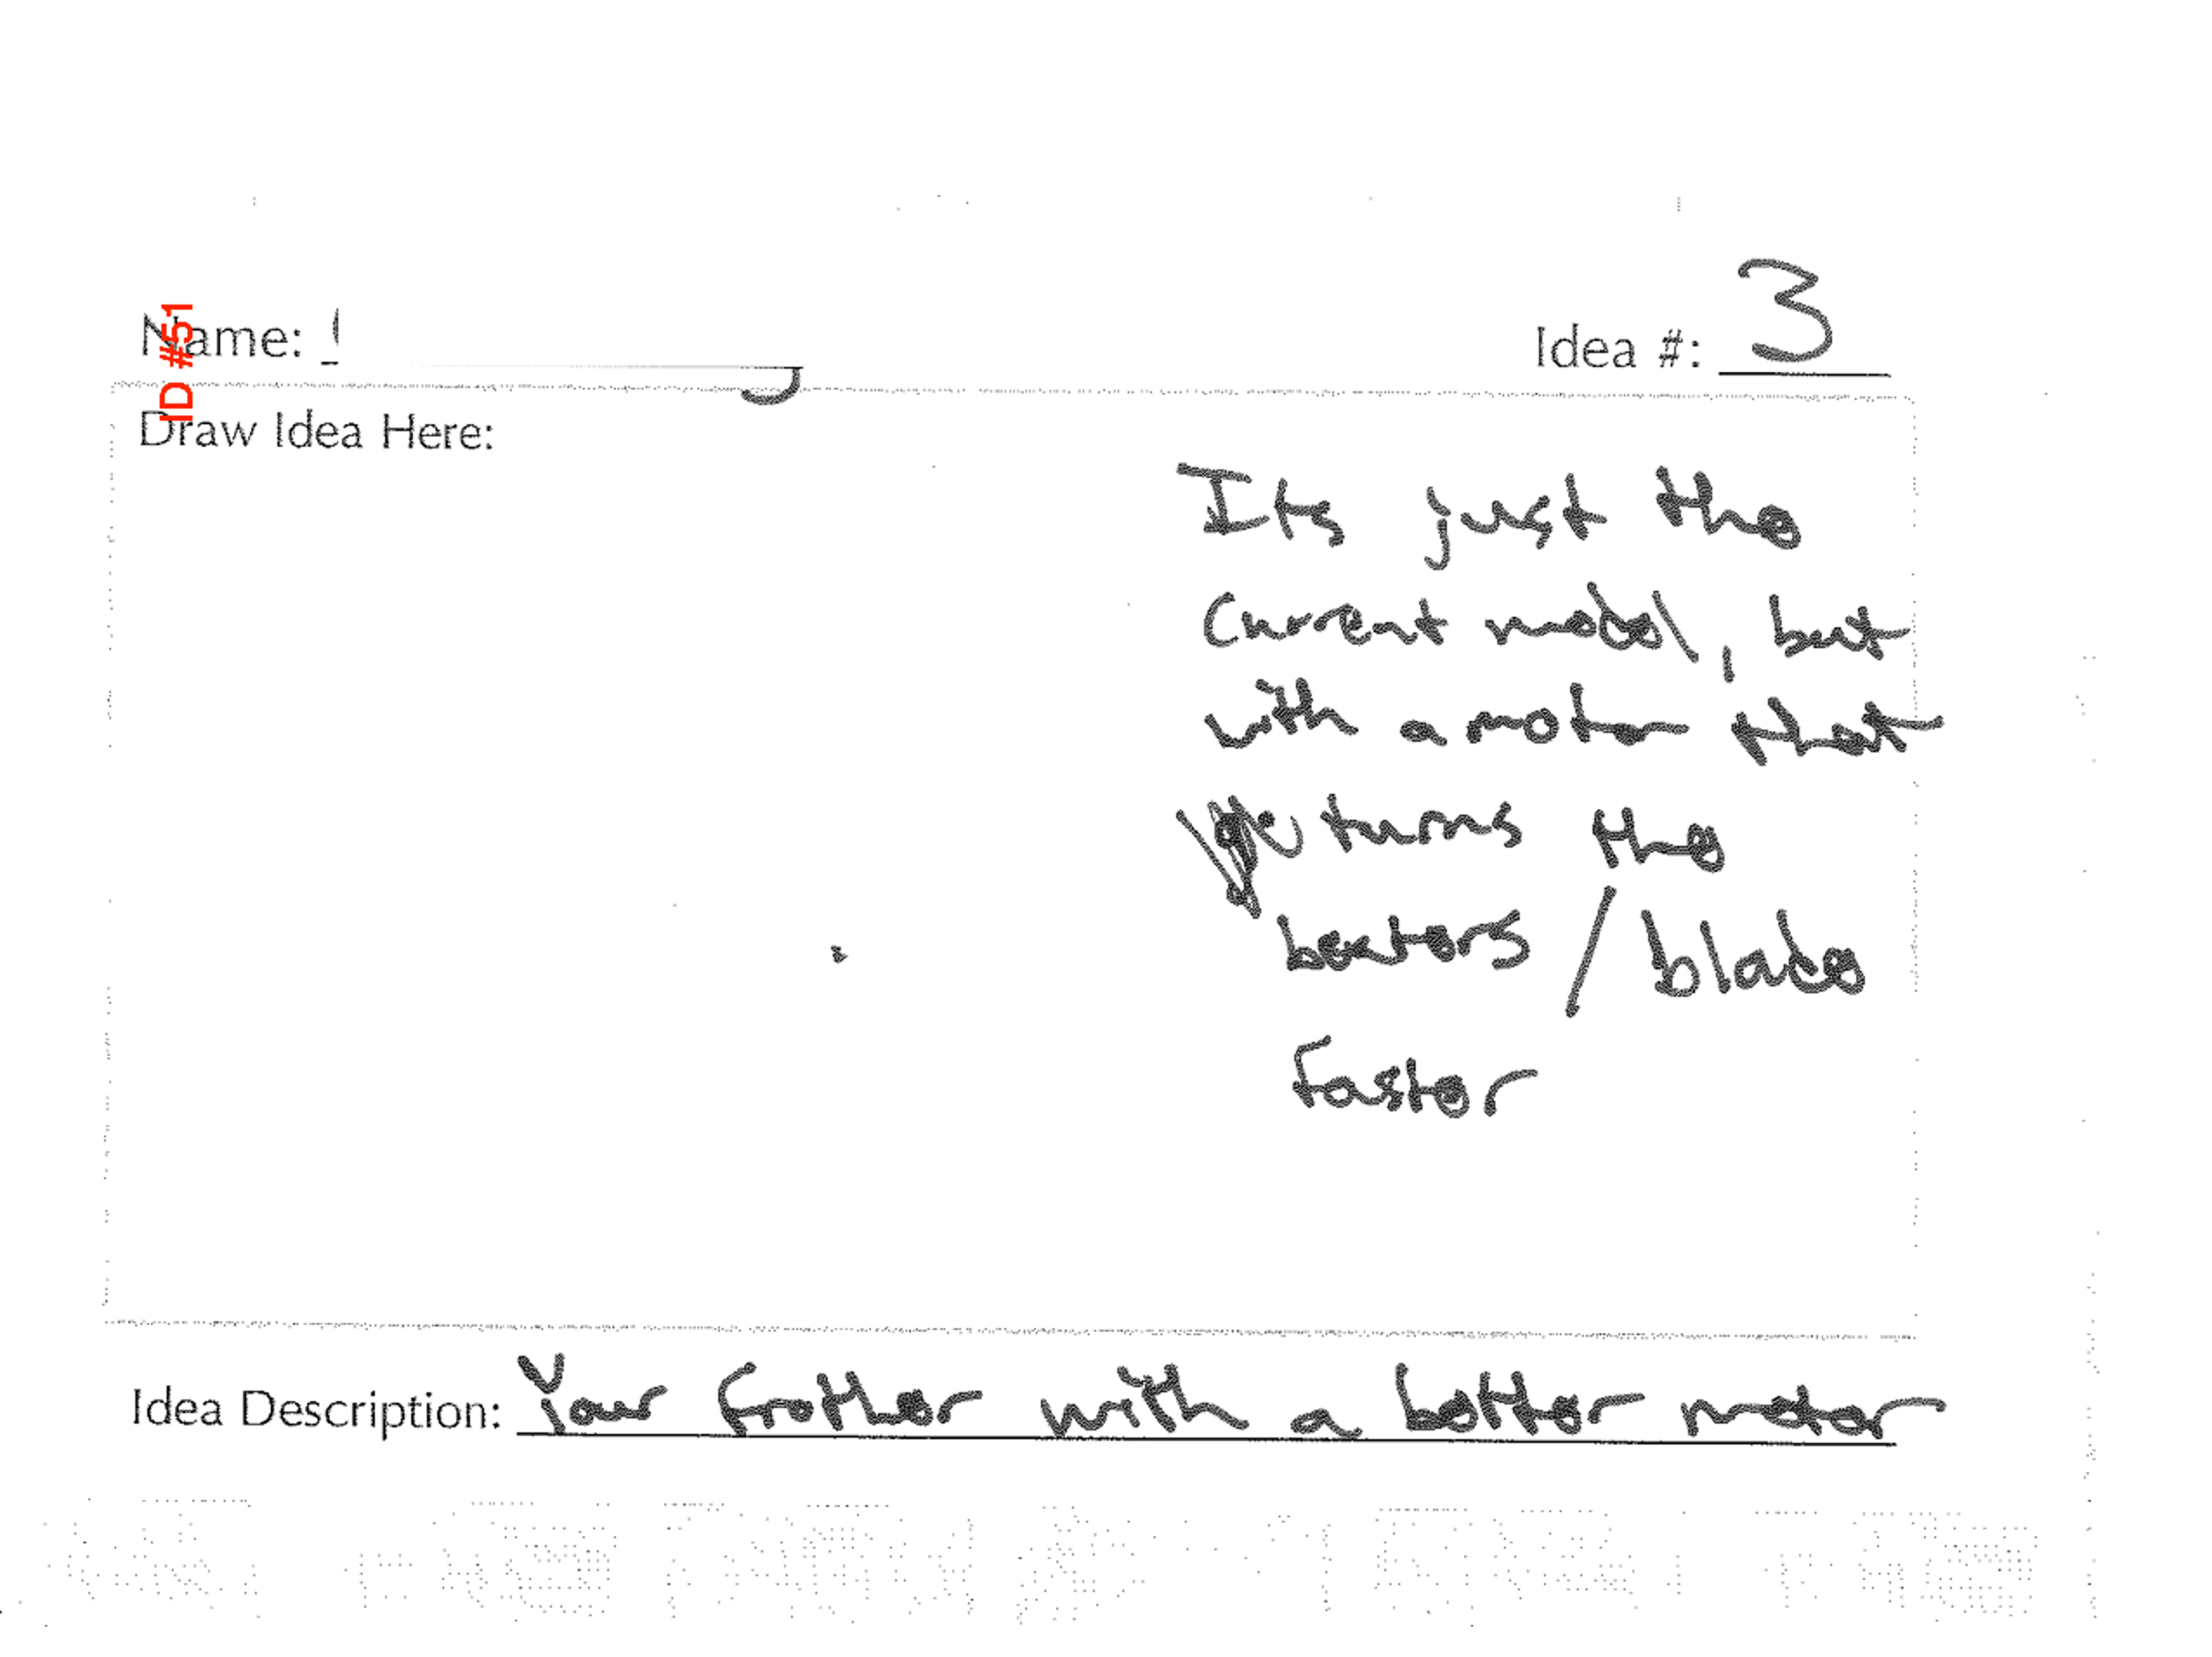 ID #51
Name:
Idea #: 3
Draw Idea Here:
Its just the
Current model, but
with a motor that
turns the
beaters / blade
Faster
Idea Description: Your frother with a better motor